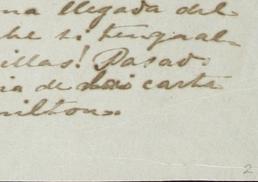 na llegada del
che si tengual
illas! Pasad
ia de mi carta
milton
2